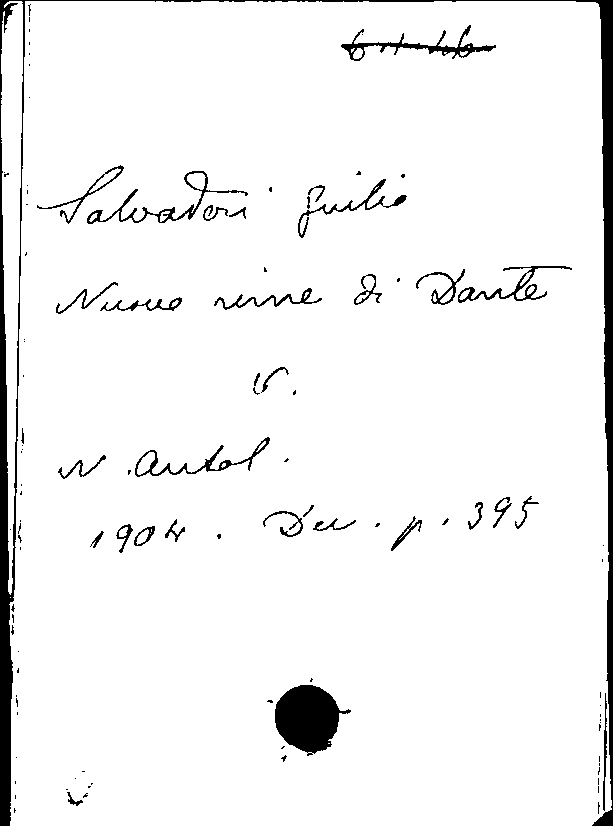 Salvadori Giulio
Nuove rime di Dante
v.
N. Antol.
1904. Dec. p. 395